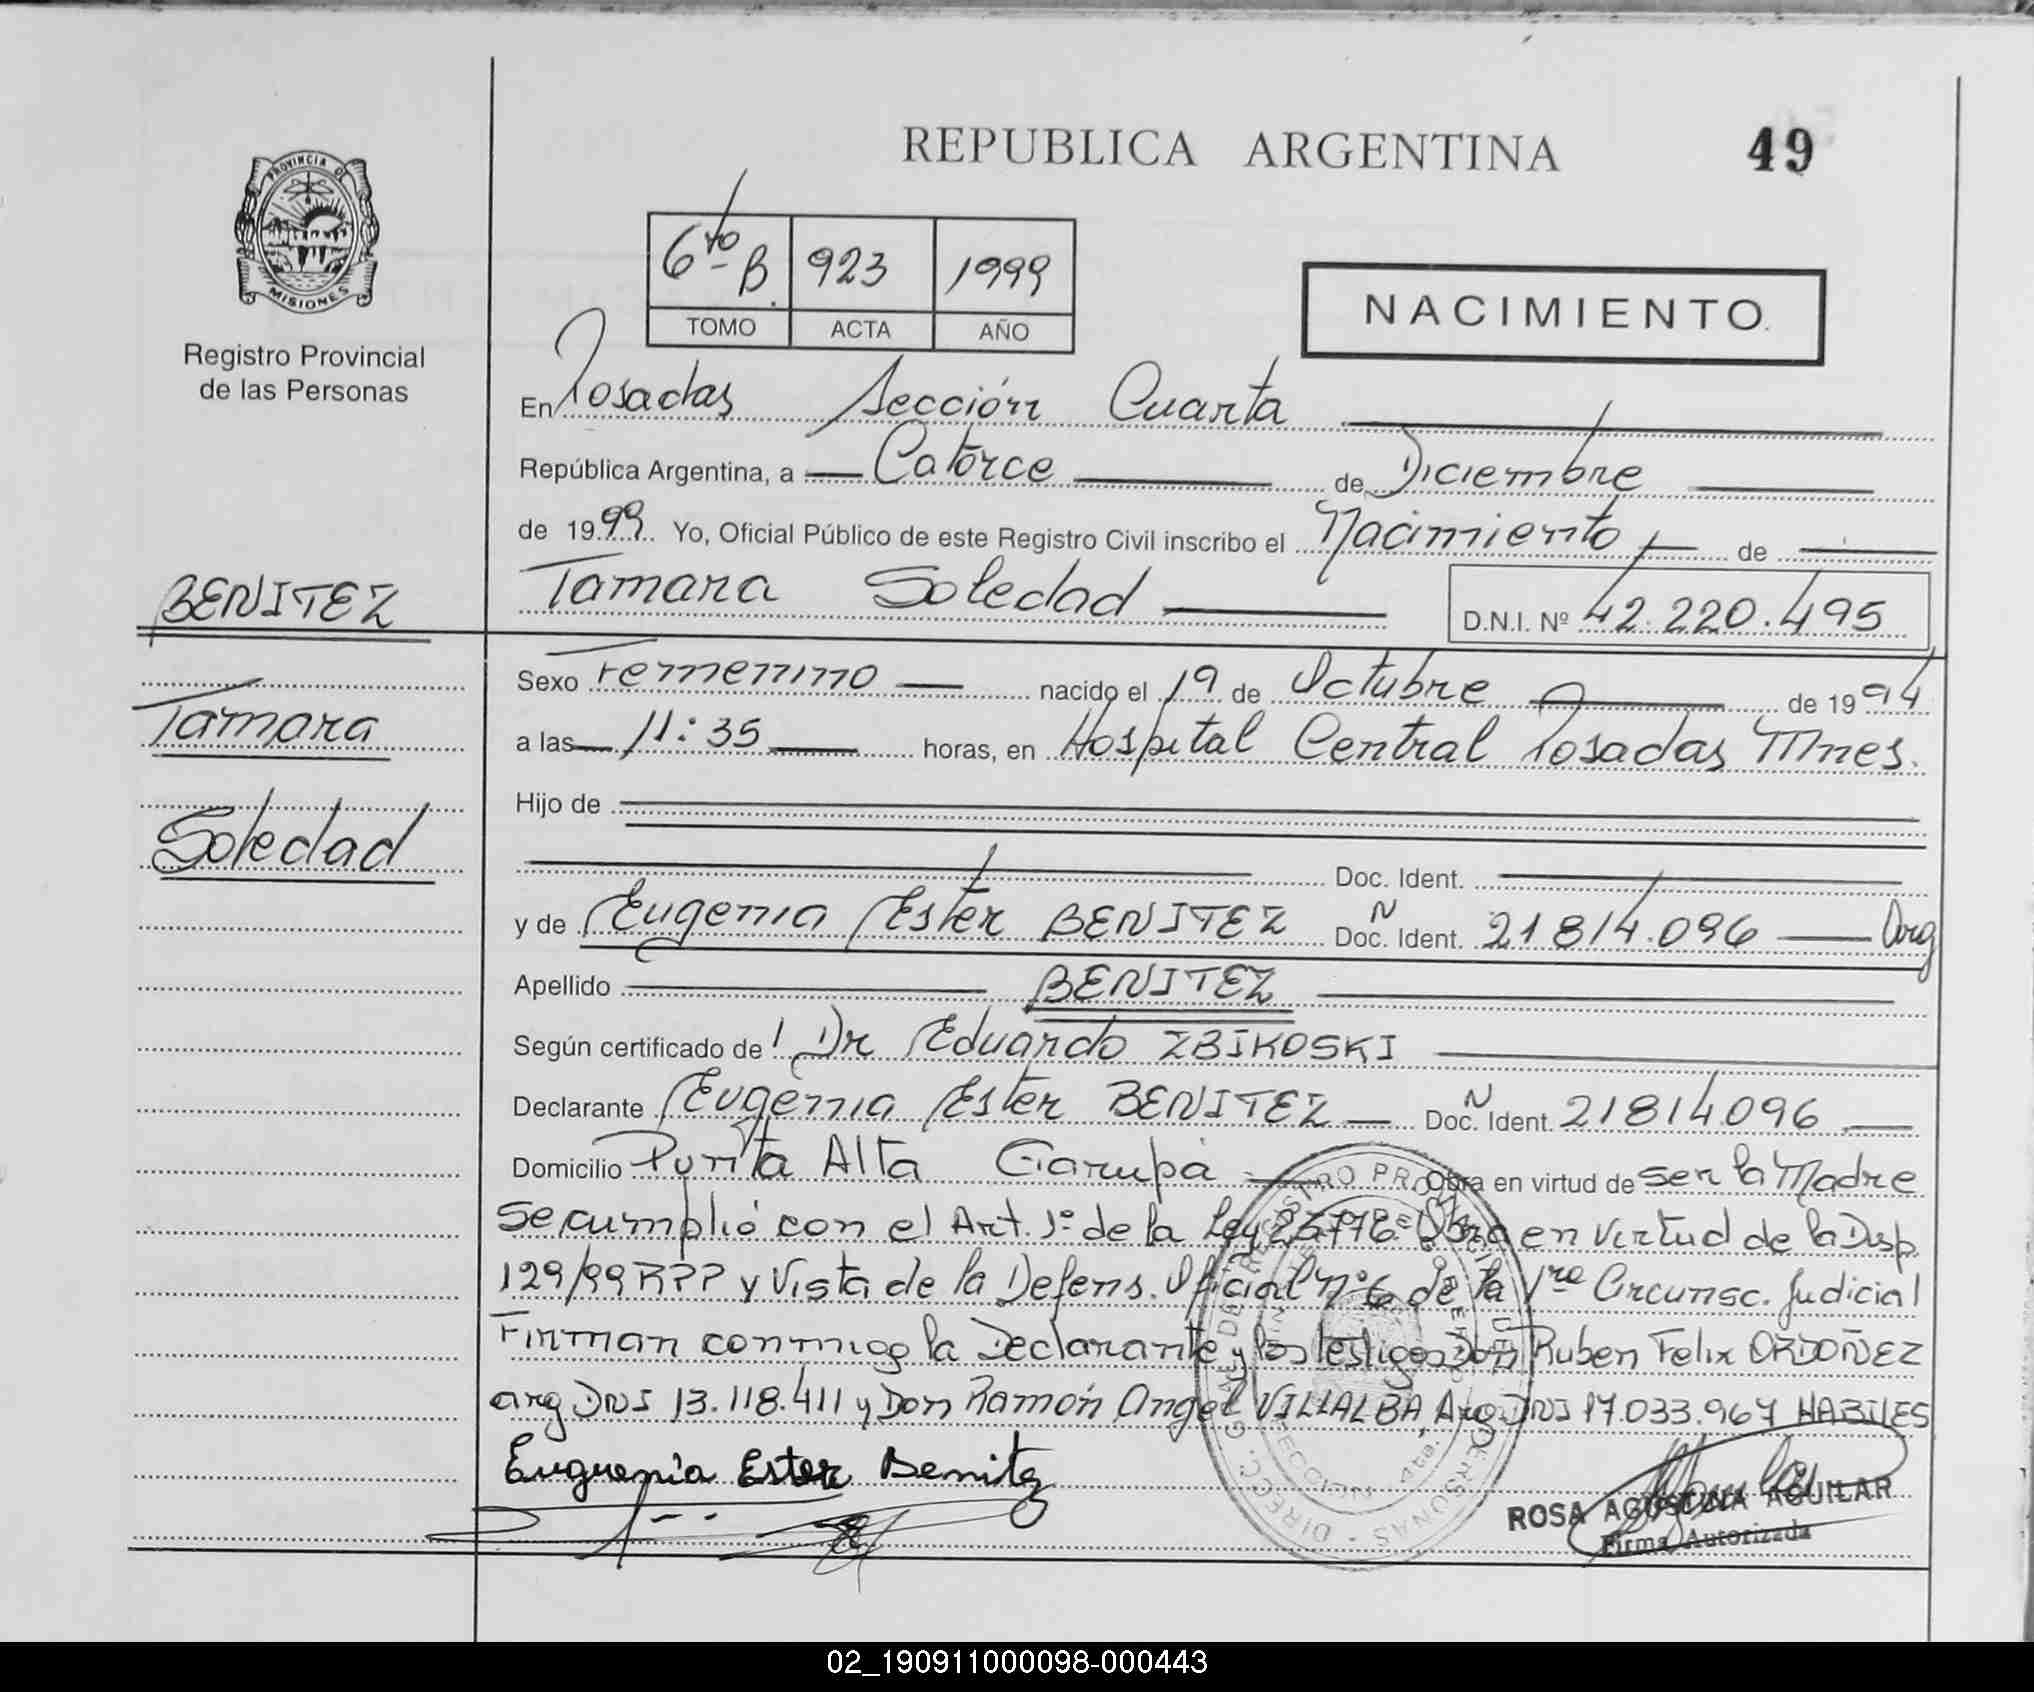 REPUBLICA ARGENTINA
49
PROVINCIA DE
MISIONES
Registro Provincial
de las Personas
6to B. 923 1999
TOMO ACTA AÑO
NACIMIENTO.
En Posadas Sección Cuarta
República Argentina, a Catorce de Diciembre
de 1999. Yo, Oficial Público de este Registro Civil inscribo el Nacimiento de
Tamara Soledad D.N.I. Nº 42.220.495
BENITEZ
Tamara
Soledad
Sexo Femenino nacido el 19 de Octubre de 1994
a las 11:35 horas, en Hospital Central Posadas Mnes.
Hijo de
Doc. Ident.
y de Eugenia Ester BENITEZ Doc. Ident. N 21814.096 Arg
Apellido BENITEZ
Según certificado de l Dr Eduardo ZBIKOSKI
Declarante Eugenia Ester BENITEZ Doc. Ident. N 21814096
Domicilio Punta Alta Garupá Obra en virtud de ser la Madre
Se cumplió con el Art. 1º de la Ley Obra en virtud de la Disp.
129/99 RPP y Vista de la Defens. Oficial Nº 6 de la 1ra Circunsc. Judicial
Firman conmigo la Declarante y los testigos Don Ruben Felix ORDOÑEZ
arg DNI 13.118.411 y Don Ramón Angel VILLALBA Arg. DNI 17.033.967 HABILES
Euguenia Ester Benitez
ROSA AGUSTINA AGUILAR
Firma Autorizada
02_190911000098-000443